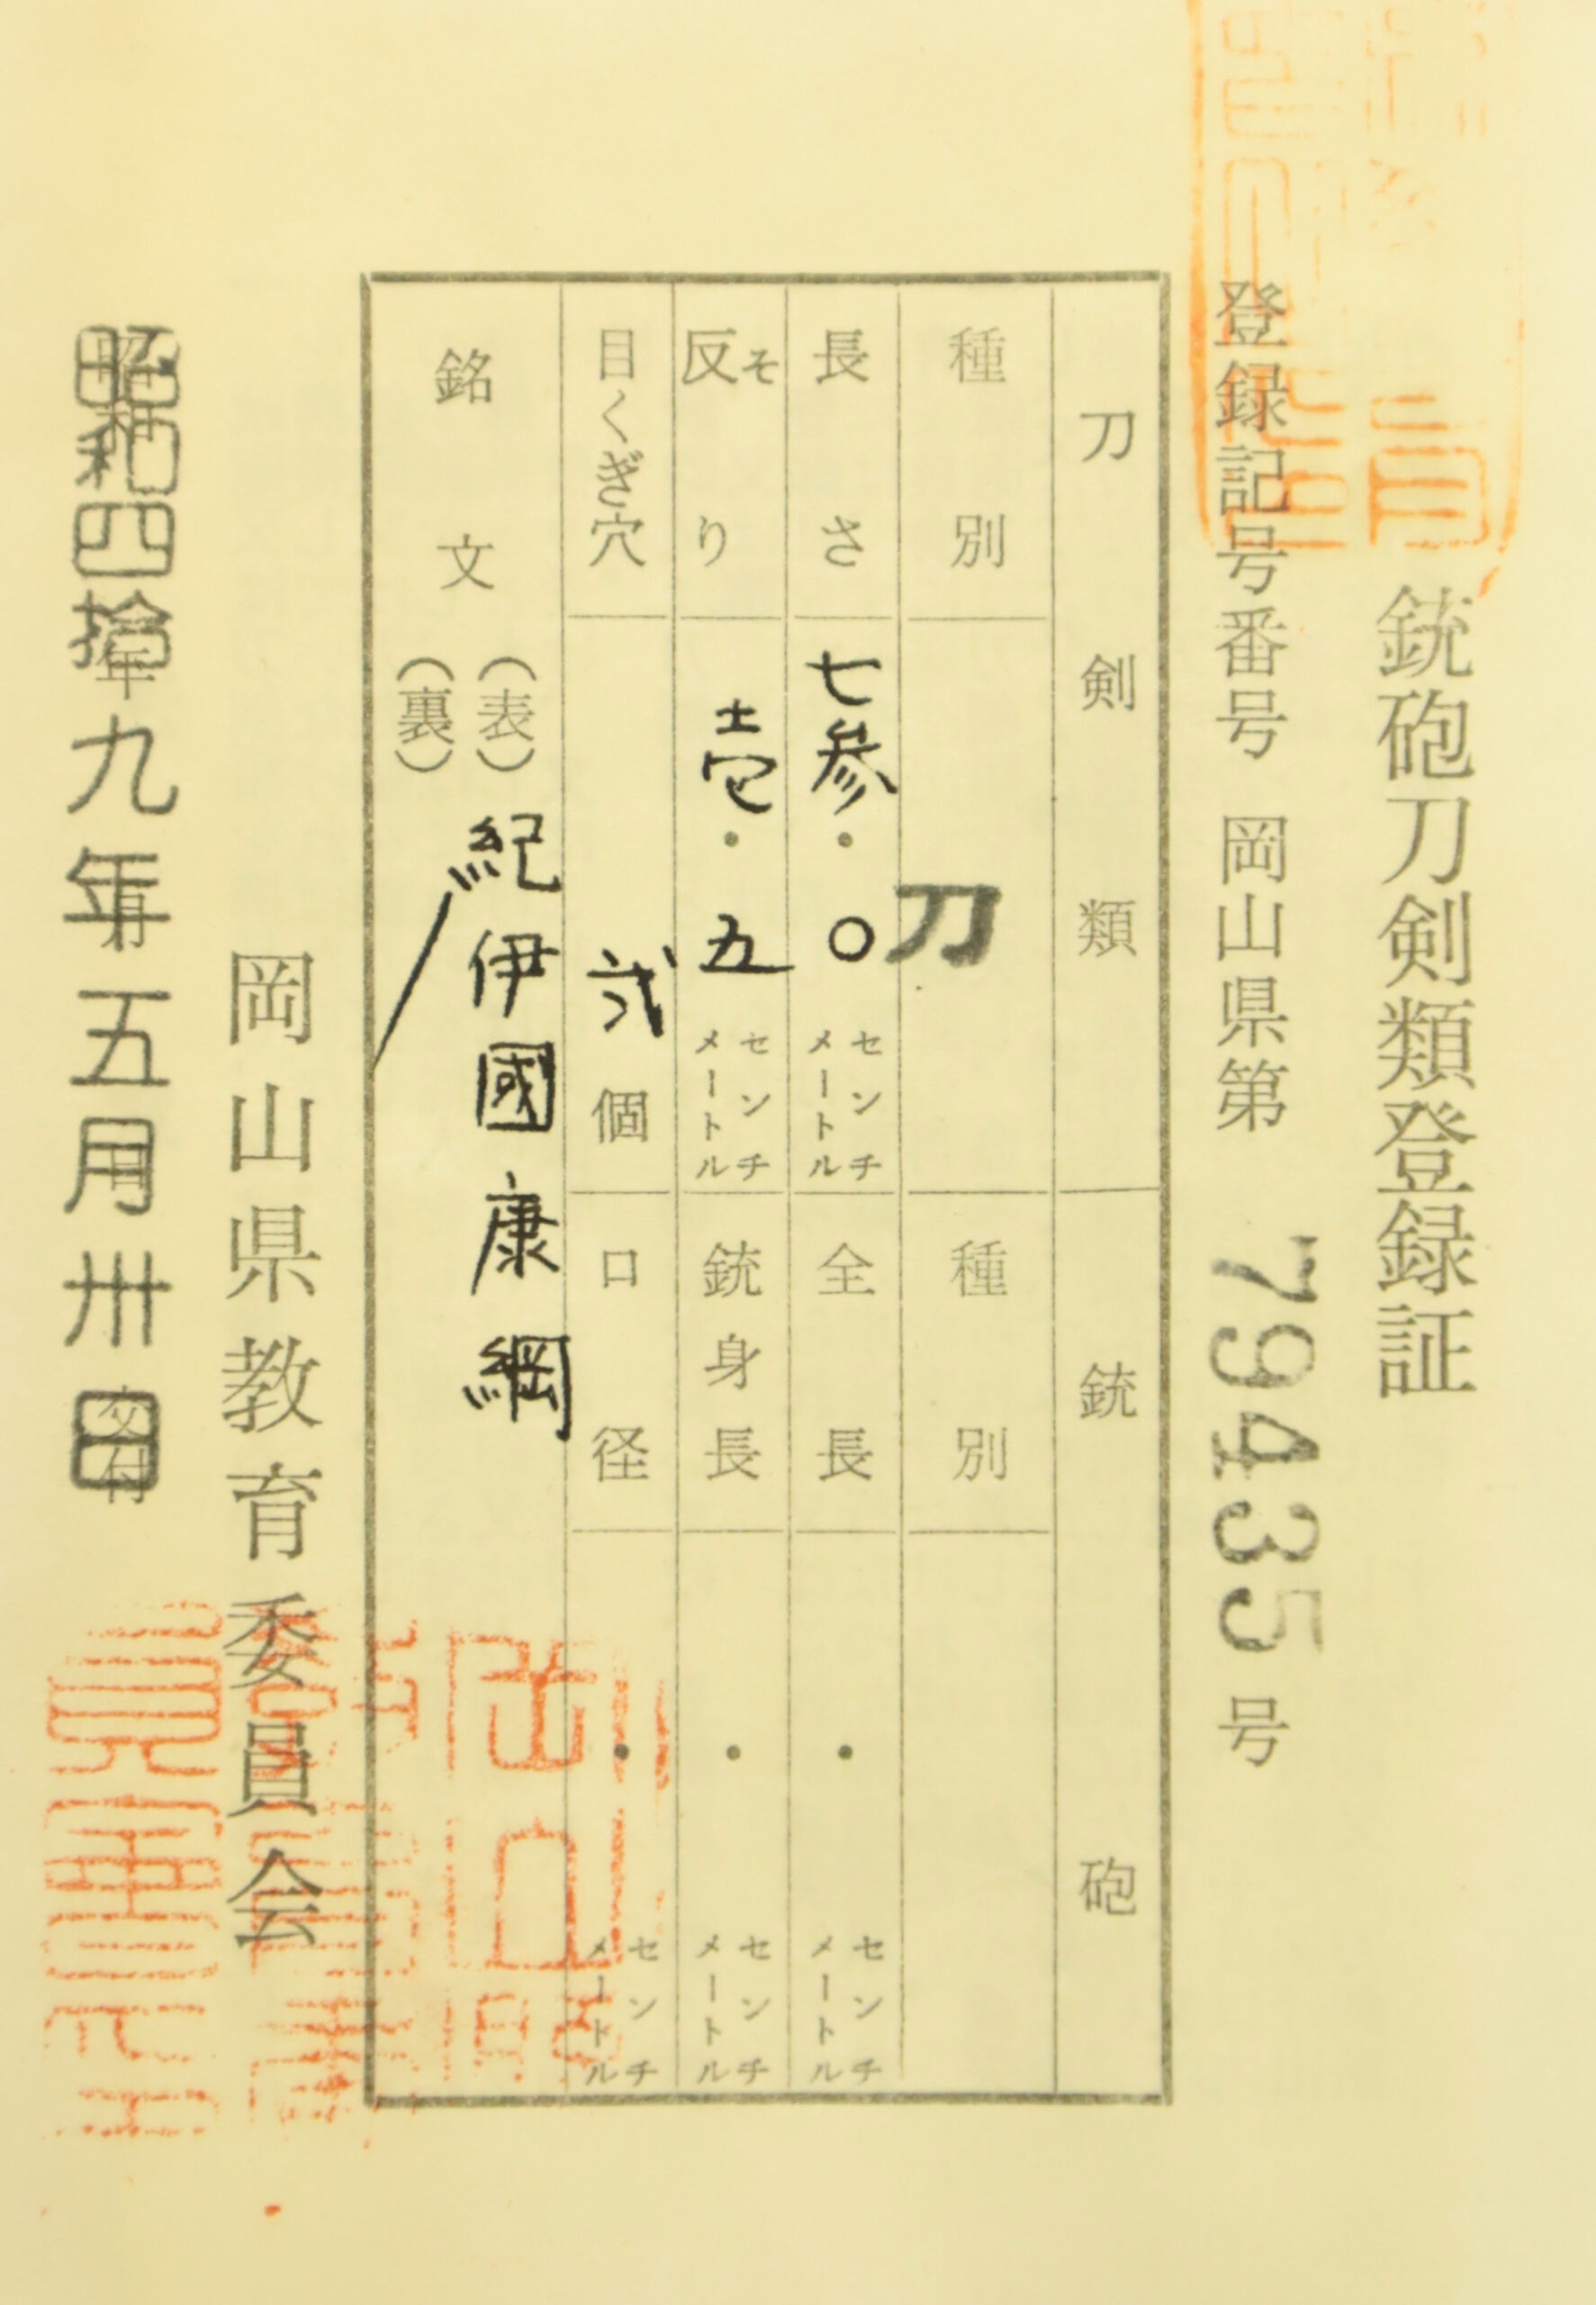 銃砲刀剣類登録証
登録記号番号 岡山県第 79435 号
刀剣類 銃砲
種別 刀 種別
長さ 七参・〇 センチメートル 全長 ・ センチメートル
反り そ 壱・五 センチメートル 銃身長 ・ センチメートル
目くぎ穴 弐個 口径 ・ センチメートル
銘文 (表) 紀伊國康綱
(裏)
岡山県教育委員会
昭和四拾九年五月卅日